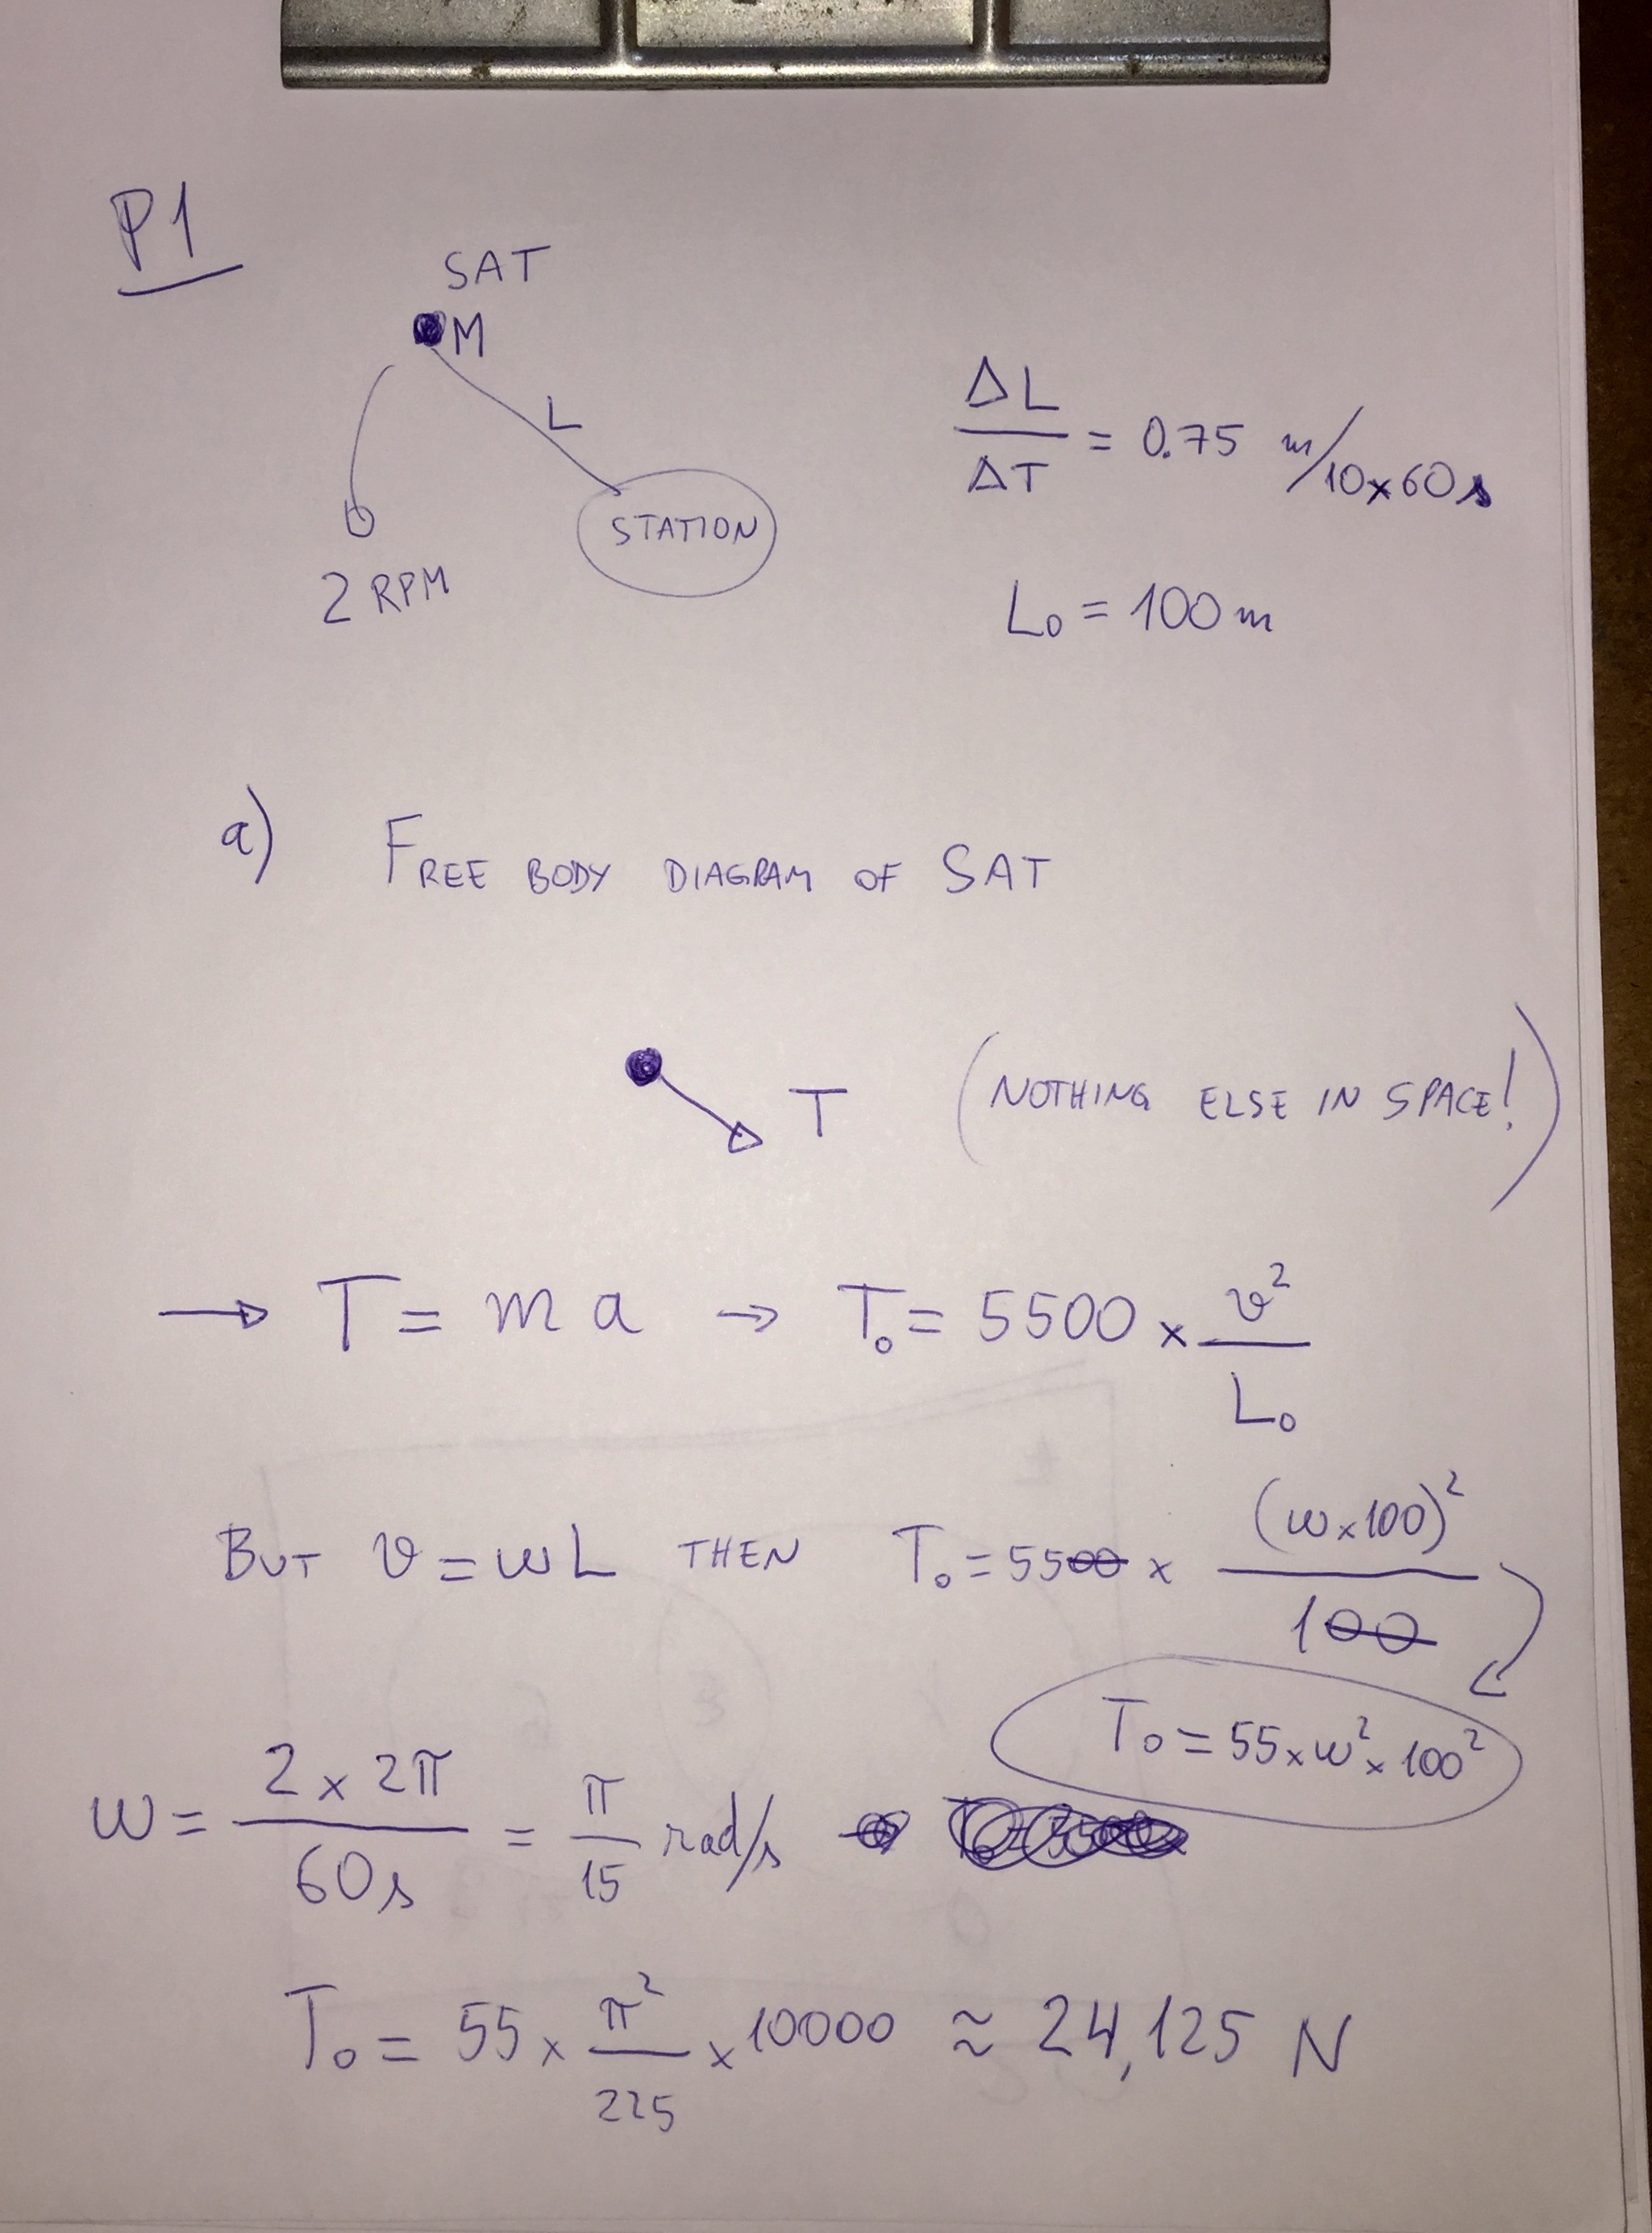 P1
SAT
M
L
STATION
2 RPM
ΔL/ΔT = 0.75 m/10x60s
L₀ = 100 m
a) FREE BODY DIAGRAM OF SAT
T (NOTHING ELSE IN SPACE!)
→ T = m a → T₀ = 5500 x v²/L₀
BUT v = ωL THEN T₀ = 5500 x (ω x 100)²/100
T₀ = 55 x ω² x 100²
ω = 2 x 2π/60s = π/15 rad/s
T₀ = 55 x π²/225 x 10000 ≈ 24,125 N